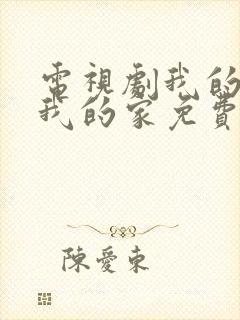 電視劇我的
我的家免費
陳愛東